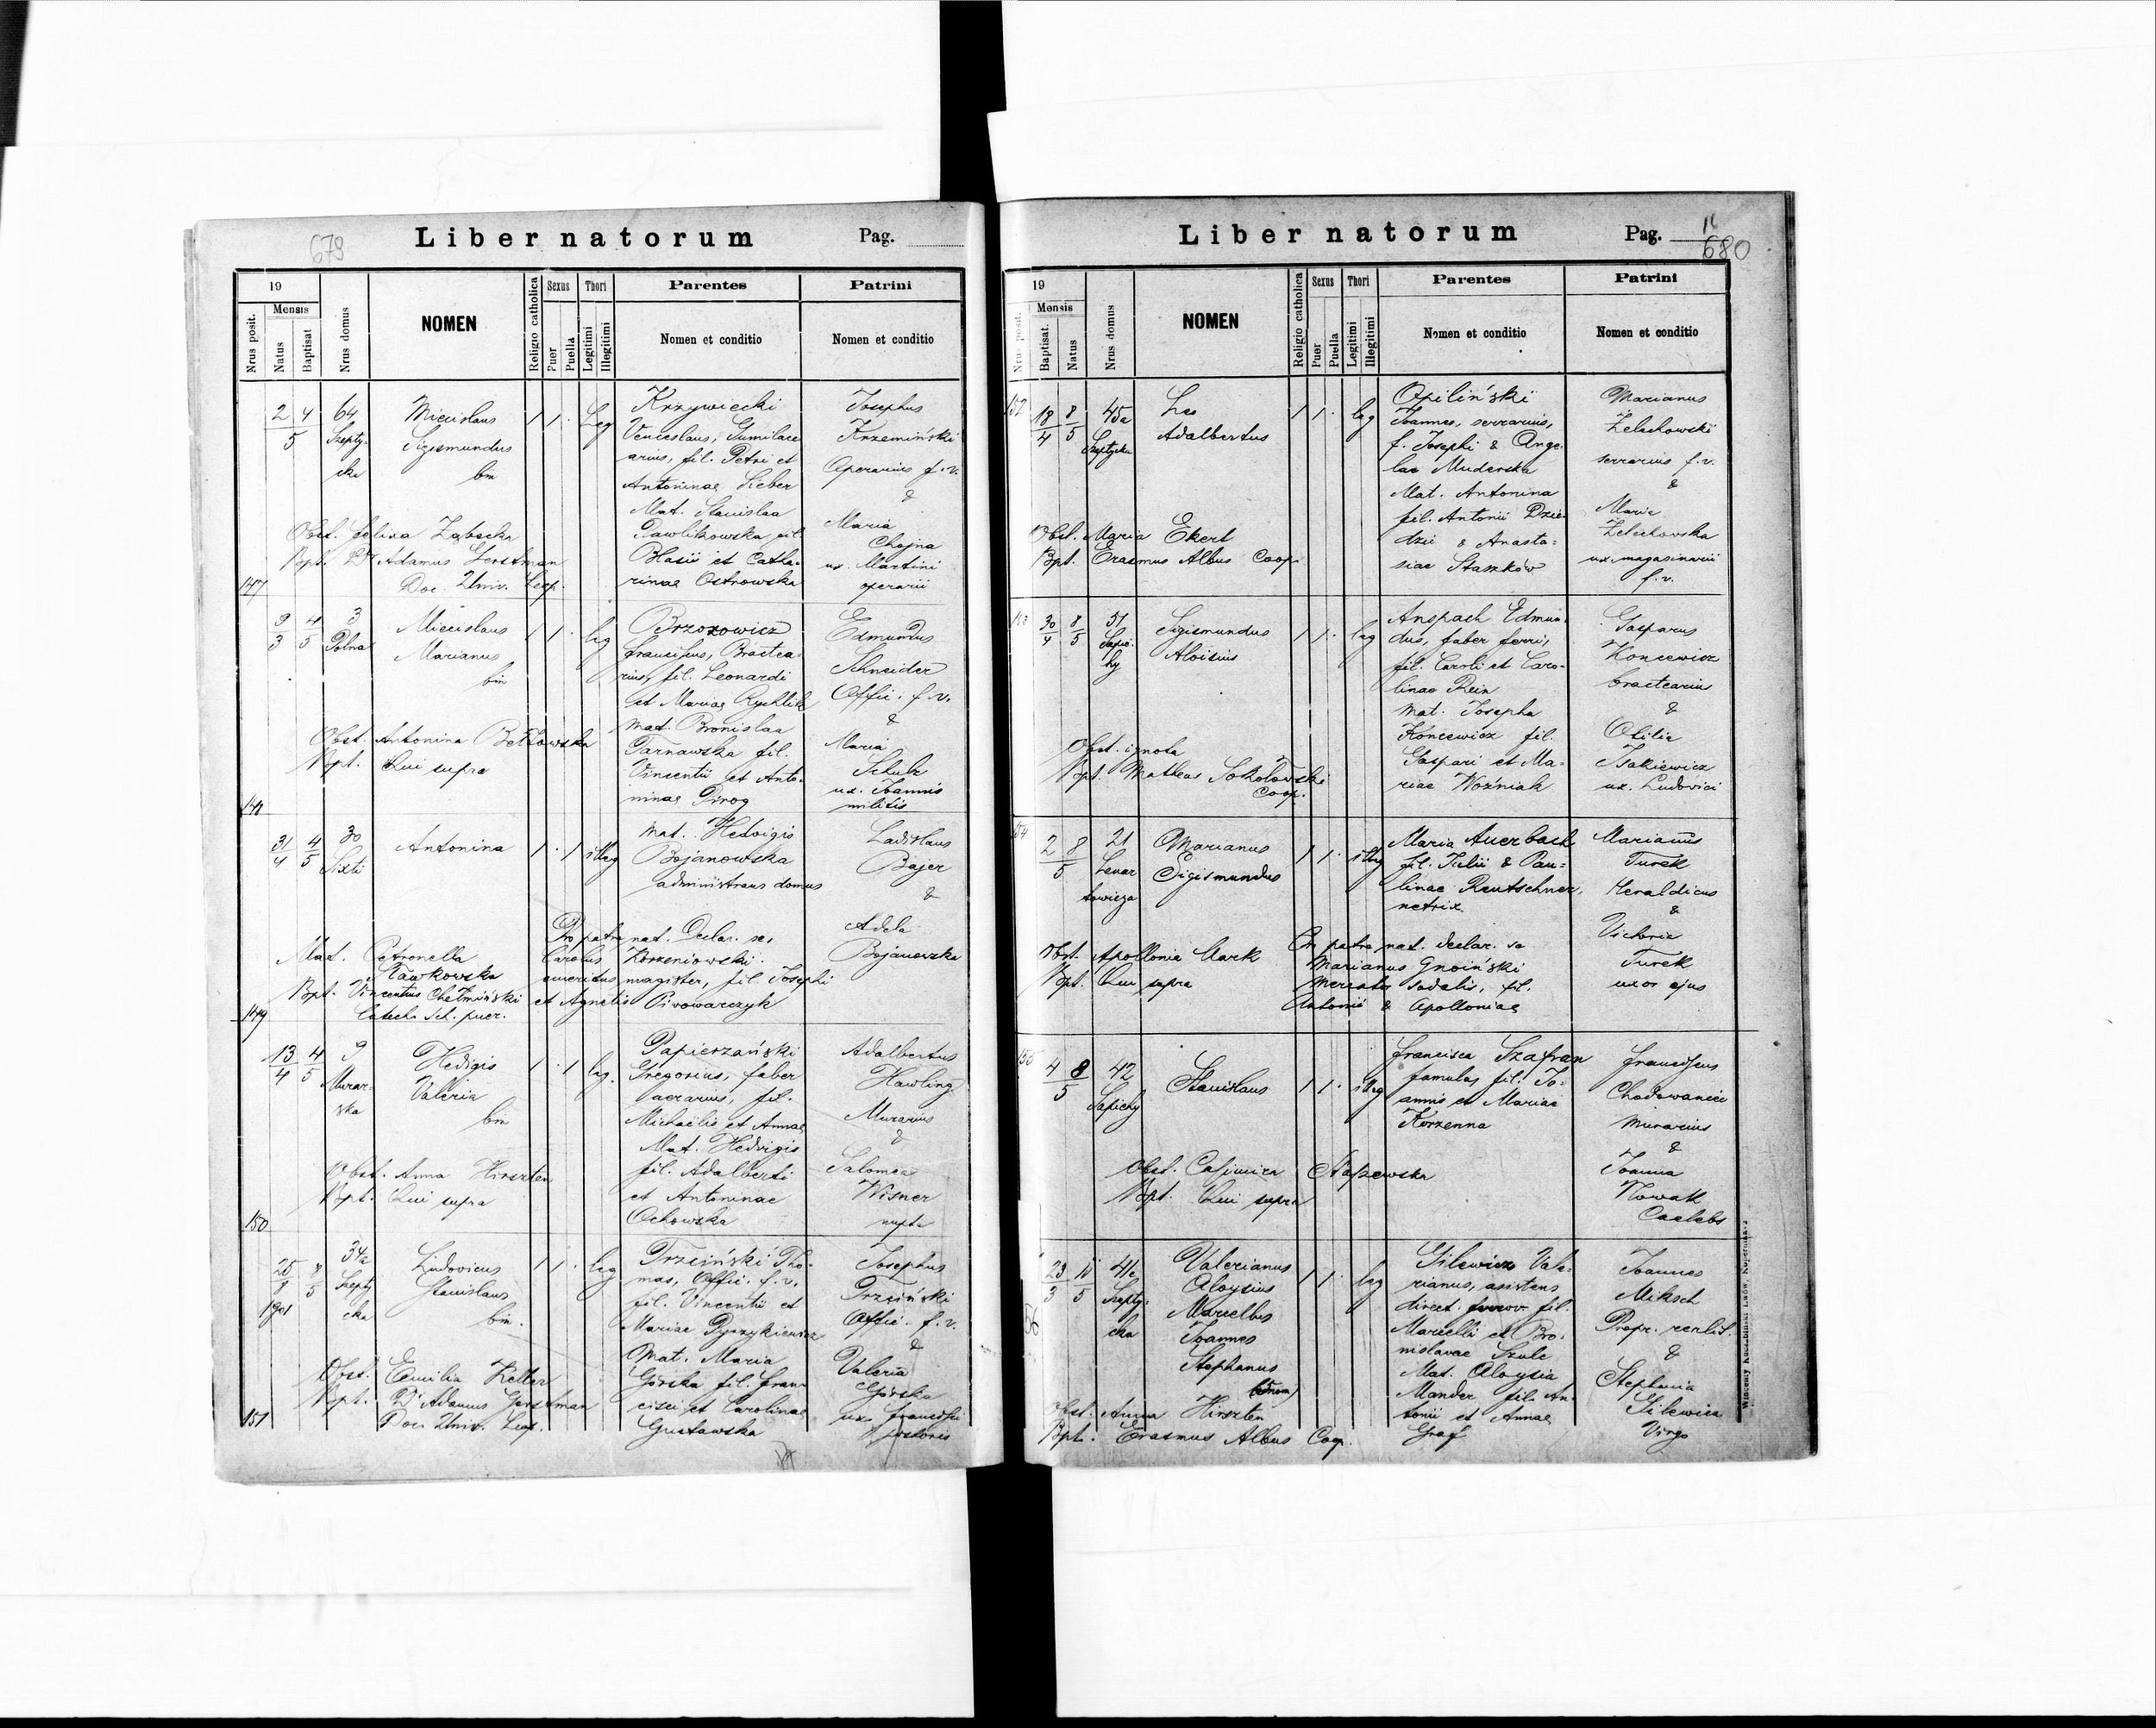 679
Liber natorum
Pag.
19
Mensis
Nrus posit.
Natus
Baptisat
Nrus domus
NOMEN
Religio catholica
Sexus
Puer
Puella
Thori
Legitimi
Illegitimi
Parentes
Nomen et conditio
Patrini
Nomen et conditio
147
2/5 4
64
Szepty-
cka
Miecislaus
Sigismundus
bin
1 1 · Leg
Krzywiecki
Venceslaus, Gumilace
arius, fil. Petri et
Antoninae Lieber
Mat. Stanislaa
Pawlikowska fil.
Blasii et Catha-
rinae Ostrowska
Josephus
Krzemiński
Operarius f. v.
&
Maria
Chojna
ux. Martini
operarii
Obst. Celina Ząbecka
Bpt. Dr Adamus Gerstman
Doc. Univ. Leop.
9/3 4/5
3
Polna
Miecislaus
Marianus
bin
1 1 · leg
Brzozowicz
Franciscus, Bractea-
rius, fil. Leonardi
et Mariae Rychlik
Mat. Bronislaa
Tarnawska fil.
Vincentii et Anto-
ninae Pirog
Edmundus
Schneider
Offic. f. v.
&
Maria
Schulz
ux. Joannis
militis
Obst. Antonina
Bpt. Qui supra
31/4 4/5
30
Sixti
Antonina
1 · 1 illeg
Mat. Hedvigis
Bojanowska
administrans domus
Ladislaus
Bajer
&
Adela
Bojanowska
Pro patre nat. Declar. se,
Carolus Korzeniowski.
emeritus magister, fil. Josephi
et Agnetis Piwowarczyk
Mat. Petronella
Sławkowska
Bpt. Vincentius Chełmiński
Catech. Sch. puer.
149
13/4 4/5
9
Murar-
ska
Hedigis
Valeria
bin
1 · 1 leg.
Papierzański
Gregorius, faber
aerarius, fil.
Michaëlis et Annae
Mat. Hedvigis
fil. Adalberti
et Antoninae
Ochowska
Adalbertus
Hawling
Murarius
&
Salomea
Wisner
nupta
Obst. Anna Hirszten
Bpt. Qui supra
150
25/8 1901 8/5
34a
Szepty
cka
Ludovicus
Stanislaus
bin.
1 1 · leg
Trzciński Tho-
mas, Offic. f. v.,
fil. Vincentii et
Mariae
Mat. Maria
Górska fil. Fran-
cisci et Carolinae
Gustawska
Josephus
Trzciński
Offic. f. v.
&
Valeria
Górska
ux. Francisci
Obst. Emilia Keller
Bpt. Dr Adamus Gerstman
Doc. Univ. Leop.
151
Liber natorum
Pag. 16
680
19
Mensis
Nrus posit.
Baptisat.
Natus
Nrus domus
NOMEN
Religio catholica
Sexus
Puer
Puella
Thori
Legitimi
Illegitimi
Parentes
Nomen et conditio
Patrini
Nomen et conditio
152
18/4 8/5
45a
Szeptycka
Leo
Adalbertus
1 1 · leg
Opiliński
Joannes, serrarius,
f. Josephi & Ange-
lae Muderska
Mat. Antonina
fil. Antonii Dzie-
dzic & Anasta-
siae Staszków
Marianus
Żelechowski
serrarius f. v.
&
Maria
Żelechowska
ux. magasinarii
f. v.
Obst. Maria Ekert
Bpt. Erasmus Albus Coop.
30/4 8/5
51
Sapie-
hy
Sigismundus
Aloisius
1 1 · leg
Anspach Edmun-
dus, faber ferri,
fil. Caroli et Caro-
linae Rein
Mat. Josepha
Koncewicz fil.
Gaspari et Ma-
riae Woźniak
Gasparus
Koncewicz
bractearius
&
Otilia
Isakiewicz
ux. Ludovici
Obst. ignota
Bpt. Matheus Sokołowski
Coop.
154
2/5 8
21
Lenar
towicza
Marianus
Sigismundus
1 1 · illeg
Maria Auerbach
fil. Julii & Pau-
linae Reutschner,
netrix
Marianus
Turek
Heraldicus
&
Victoria
Turek
uxor ejus
Obst. Apollonia Mark
Bpt. Qui supra
Pro patre nat. declar. se
Marianus Gnoiński
Mercator sodalis, fil.
Antonii & Apolloniae
155
4/5 8
42
Sapiehy
Stanislaus
1 1 · illeg
Francisca Szafran
famulas fil. Jo-
annis et Mariae
Korzenna
Franciscus
Chodowaniec
Murarius
&
Joanna
Nowak
Caelebs
Obst. Casimira Stapewska
Bpt. Qui supra
56
23/3 15/5
41c
Szepty-
cka
Valerianus
Aloysius
Marcellus
Joannes
Stephanus
1 1 · leg
Gilewicz Vale-
rianus, asistens
direct. ferrov fil.
Marcelli et Bro-
nislavae Szulc
Mat. Aloysia
Mander fil. An-
tonii et Annae
Graf
Joannes
Miksch
Propr. realit.
&
Stephania
Gilewicz
Virgo
Obst. Anna Hirszten
Bpt. Erasmus Albus Coop.